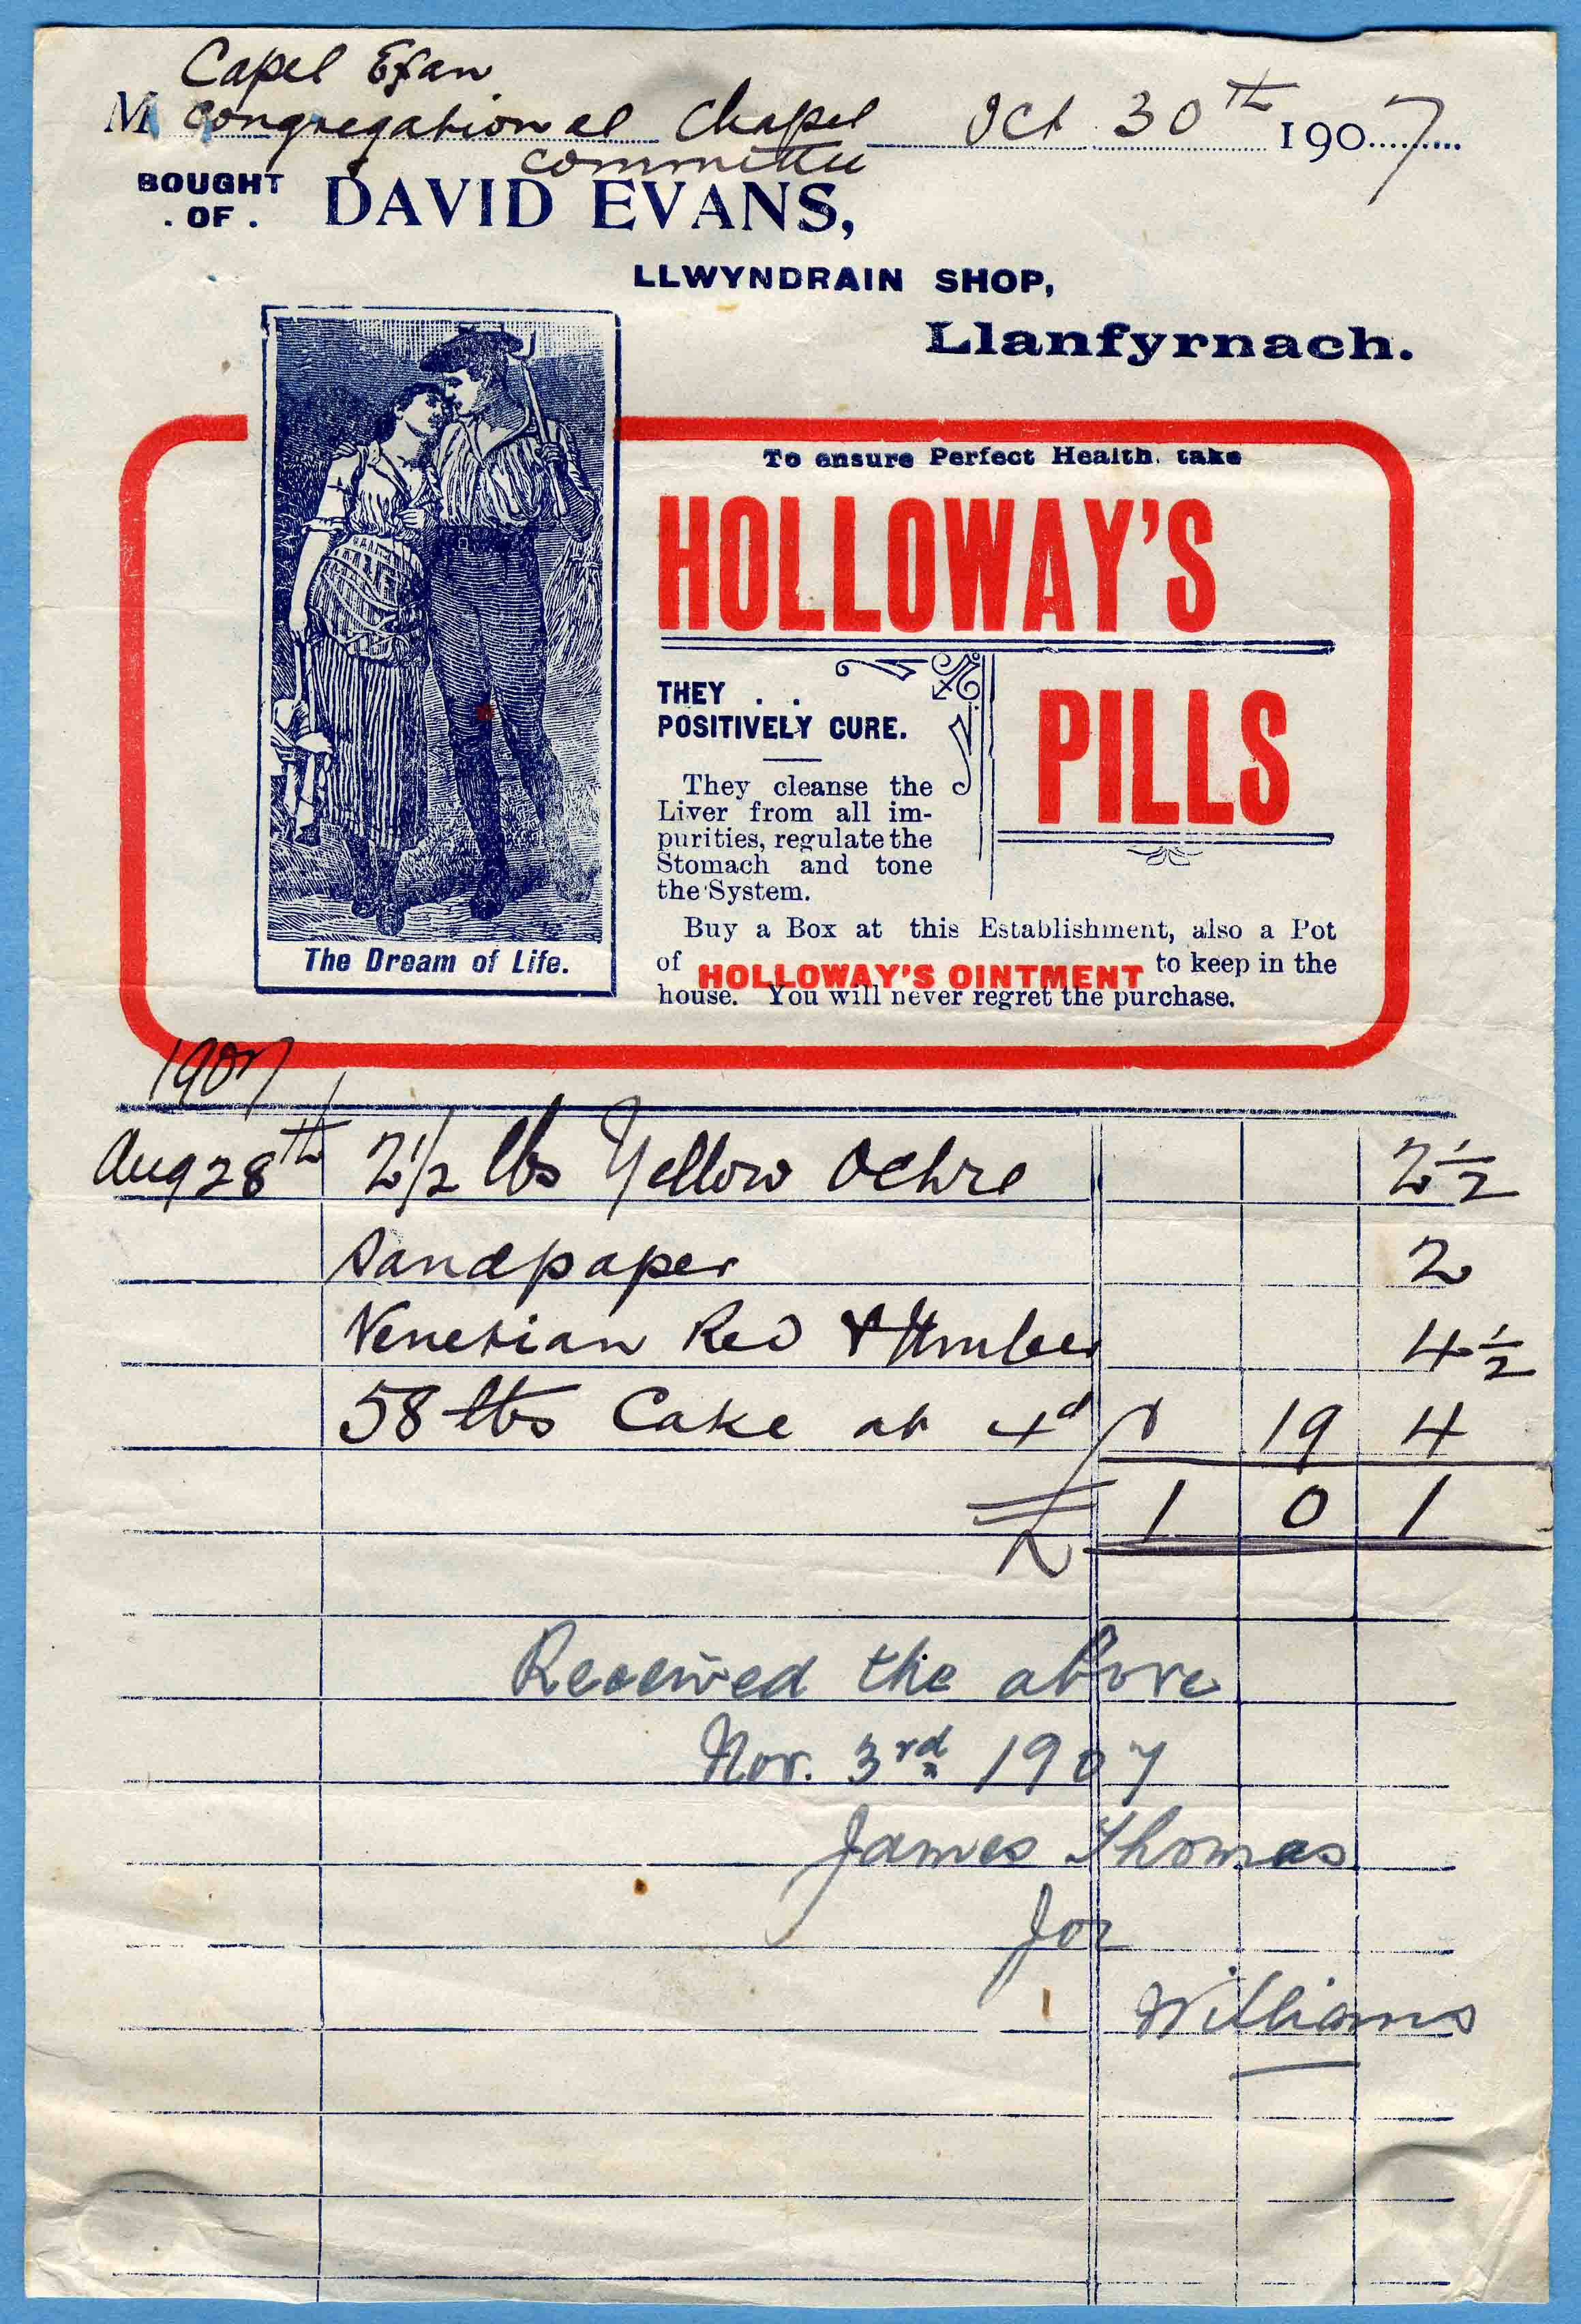 Capel Efan
M Congregational Chapel Oct 30th 1907
committee
BOUGHT
. OF .
DAVID EVANS,
LLWYNDRAIN SHOP,
Llanfyrnach.
To ensure Perfect Health, take
HOLLOWAY'S
PILLS
THEY . .
POSITIVELY CURE.
They cleanse the
Liver from all im-
purities, regulate the
Stomach and tone
the System.
Buy a Box at this Establishment, also a Pot
of HOLLOWAY'S OINTMENT to keep in the
house. You will never regret the purchase.
The Dream of Life.
1907
Aug 28th 2 1/2 lbs Yellow Ochre 2 1/2
Sandpaper 2
Venetian Red & Umber 4 1/2
58 lbs Cake at 4d 0 19 4
£ 1 0 1
Received the above
Nov. 3rd 1907
James Thomas
for
Williams